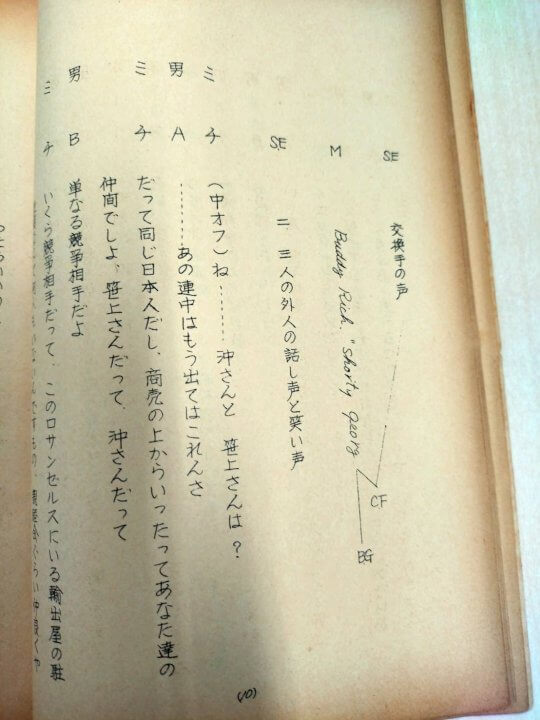 SE 交換手の声
M Buddy Rich. "Shorty Georg CF BG
SE 二、三人の外人の話し声と笑い声
ミチ (中オフ) ね……… 沖さんと 笹上さんは?
男A ………あの連中はもう出てはこれんさ
ミチ だって同じ日本人だし、商売の上からいったってあなた達の
仲間でしよ、笹上さんだって、沖さんだって
男B 単なる競争相手だよ
ミチ いくら競争相手だって、このロサンゼルスにいる輸出屋の駐
(10)